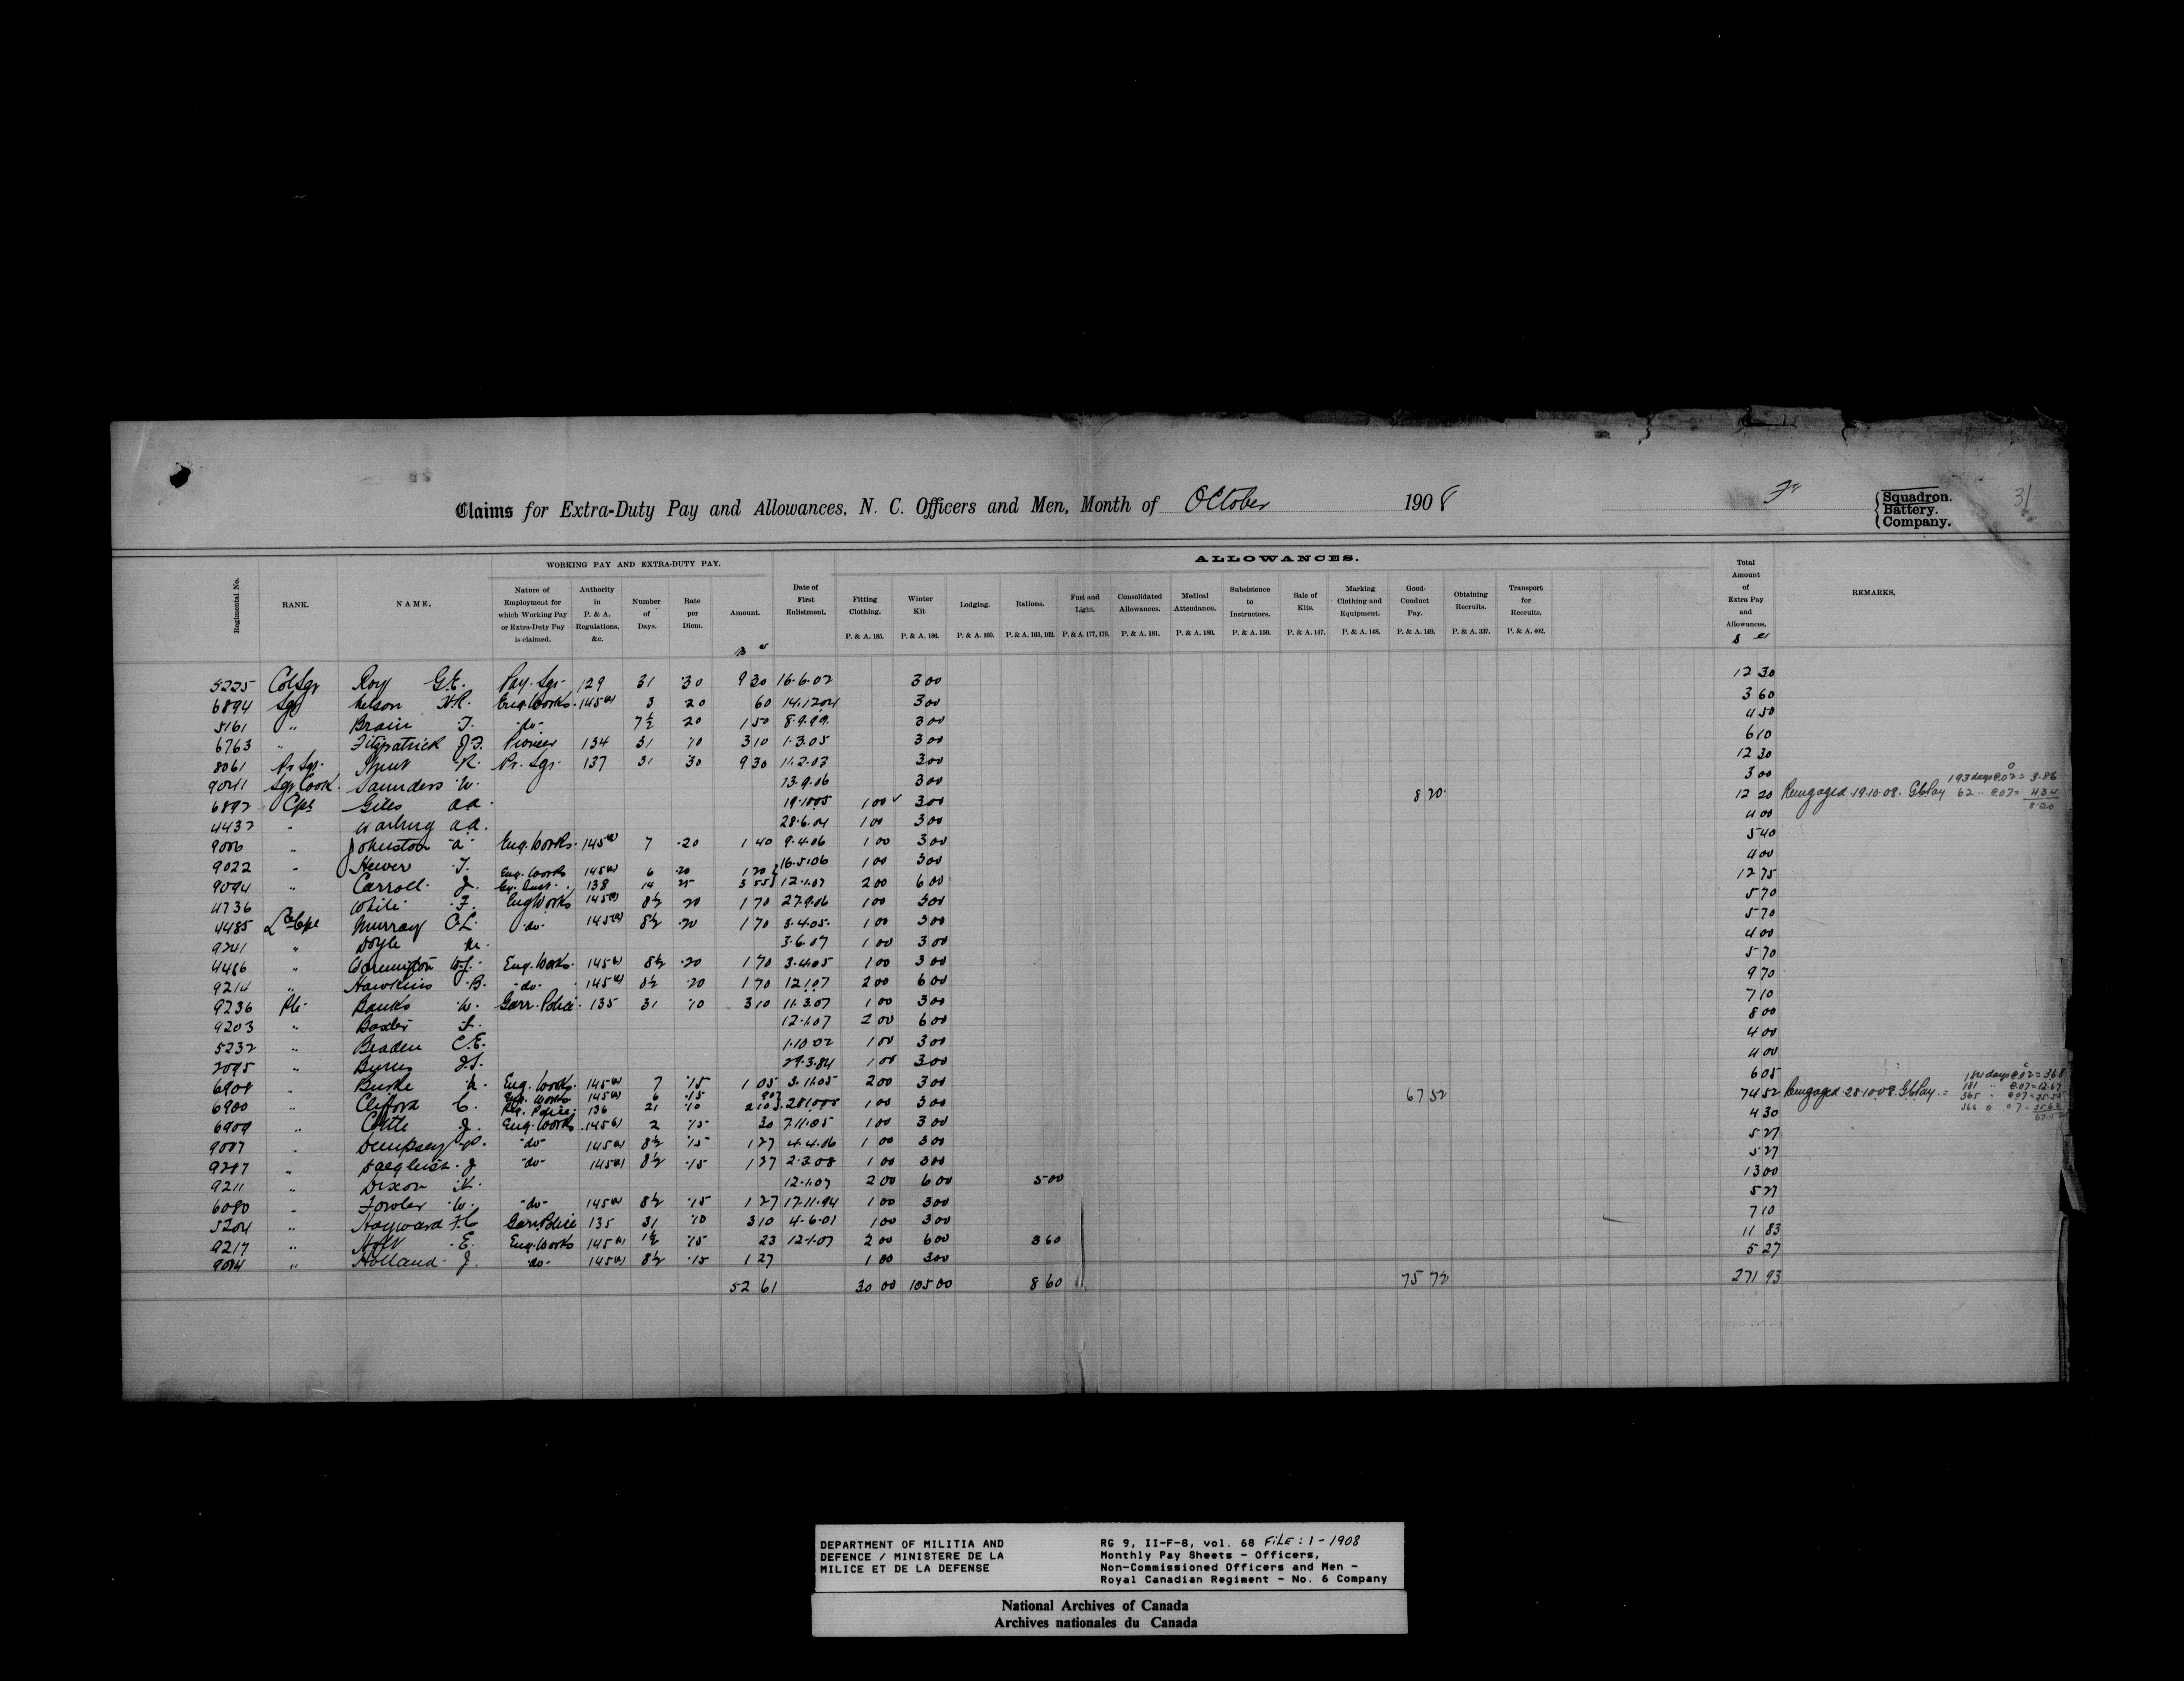 Claims for Extra-Duty Pay and Allowances, N. C. Officers and Men, Month of October 1908
Squadron.
Battery.
Company.
31
WORKING PAY AND EXTRA-DUTY PAY.
ALLOWANCES.
Regimental No. RANK. NAME. Nature of Employment for which Working Pay or Extra-Duty Pay is claimed. Authority in P. & A. Regulations, &c. Number of Days. Rate per Diem. Amount. Date of First Enlistment. Fitting Clothing. P. & A. 185. Winter Kit P. & A. 186. Lodging. P. & A. 160. Rations. P. & A. 161, 162. Fuel and Light. P. & A. 177, 178. Consolidated Allowances. P. & A. 181. Medical Attendance. P. & A. 180. Subsistence to Instructors. P. & A. 159. Sale of Kits. P. & A. 147. Marking Clothing and Equipment. P. & A. 148. Good-Conduct Pay. P. & A. 149. Obtaining Recruits. P. & A. 337. Transport for Recruits. P. & A. 402. Total Amount of Extra Pay and Allowances. REMARKS.
5225 Col Sgr Roy G.E. Pay. Sgr. 129 31 ·30 9 30 16·6·02 3 00 12 30
6894 Sgr Nelson H.R. Eng. Works. 145(a) 3 20 60 14.12.04 3 00 3 60
5161 " Brain T. -do- 7½ 20 1 50 8.9.99. 3 00 4 50
6763 " Fitzpatrick J.F. Pioneer 134 31 ·10 3 10 1·3.05 3 00 6 10
8061 Pr Sgr. R. Pr. Sgr 137 31 30 9 30 11.2.07 3 00 12 30
9041 Sgr Cook. Saunders W. 13·9.06 3 00 3 00
6892 Cpl Giles A.A. 19.10.05 1 00 3 00 8 20 12 20 Reengaged 19·10·08. G.C. Pay 193 days @ 02 = 3.86
62 " @ 07 = 4 34
8 20
4437 " Warburg A.A. 28.6.04 1 00 3 00 4 00
9006 " Johnston A. Eng. Works. 145(a) 7 ·20 1 40 9.4.06 1 00 3 00 5 40
9022 " Hewer T. 16.5.06 1 00 3 00 4 00
9094 " Carroll J. Eng. Works 145(a) 6 ·20 1 20
138 14 25 3 55 12·1.07 2 00 6 00 12 75
4736 White F. Eng Works 145(a) 8½ 20 1 70 27.9.06 1 00 3 00 5 70
4485 L Cpl Murray C.L. -do- 145(a) 8½ ·20 1 70 3·4.05 1 00 3 00 5 70
9241 " Doyle M. 3·6.07 1 00 3 00 4 00
4486 " W.J. Eng. Works. 145(a) 8½ ·20 1 70 3·4.05 1 00 3 00 5 70
9214 " Hawkins B. -do- 145(a) 8½ ·20 1 70 12.1.07 2 00 6 00 9 70
9236 Pte Banks W. Garr. Police 135 31 ·10 3 10 11.3.07 1 00 3 00 7 10
9203 " Baxter 12·1.07 2 00 6 00 8 00
5232 " Beaden C.E. 1·10 02 1 00 3 00 4 00
2095 " Burns J.S. 29·3.84 1 00 3 00 4 00
6908 " Burke Eng. Works. 145(a) 7 ·15 1 05 3.11.05 2 00 3 00 6 05
6900 " Clifford C. Eng. Works 145(a) 6 ·15 90
Rg. Police 136 21 ·10 2 10 28.10.05 1 00 3 00 67 52 74 52 Reengaged 28·10·08. G.C. Pay = 184 days @ 02 = 3.68
181 " @ 07 = 12.67
365 " @ 07 = 25.55
366 @ 07 = 25.62
67.52
6909 " J. Eng. Works. 145(a) 2 ·15 30 7.11.05 1 00 3 00 4 30
9007 " Dempsey P. -do- 145(a) 8½ ·15 1 27 4.4.06 1 00 3 00 5 27
" J. -do- 145(a) 8½ ·15 1 27 2·3.08 1 00 3 00 5 27
9211 " Dixon 12·1.07 2 00 6 00 5 00 13 00
6080 " Fowler W. -do- 145(a) 8½ ·15 1 27 17.11.94 1 00 3 00 5 27
5204 " Hayward F.C. Garr Police 135 31 ·10 3 10 4·6.01 1 00 3 00 7 10
9217 " E. Eng. Works 145(a) 1½ ·15 23 12·1.07 2 00 6 00 3 60 11 83
" Holland J. -do- 145(a) 8½ ·15 1 27 1 00 3 00 5 27
52 61 30 00 105 00 8 60 75 72 271 93
DEPARTMENT OF MILITIA AND
DEFENCE / MINISTERE DE LA
MILICE ET DE LA DEFENSE
RG 9, II-F-8, vol. 68 FILE: 1-1908
Monthly Pay Sheets - Officers,
Non-Commissioned Officers and Men -
Royal Canadian Regiment - No. 6 Company
National Archives of Canada
Archives nationales du Canada